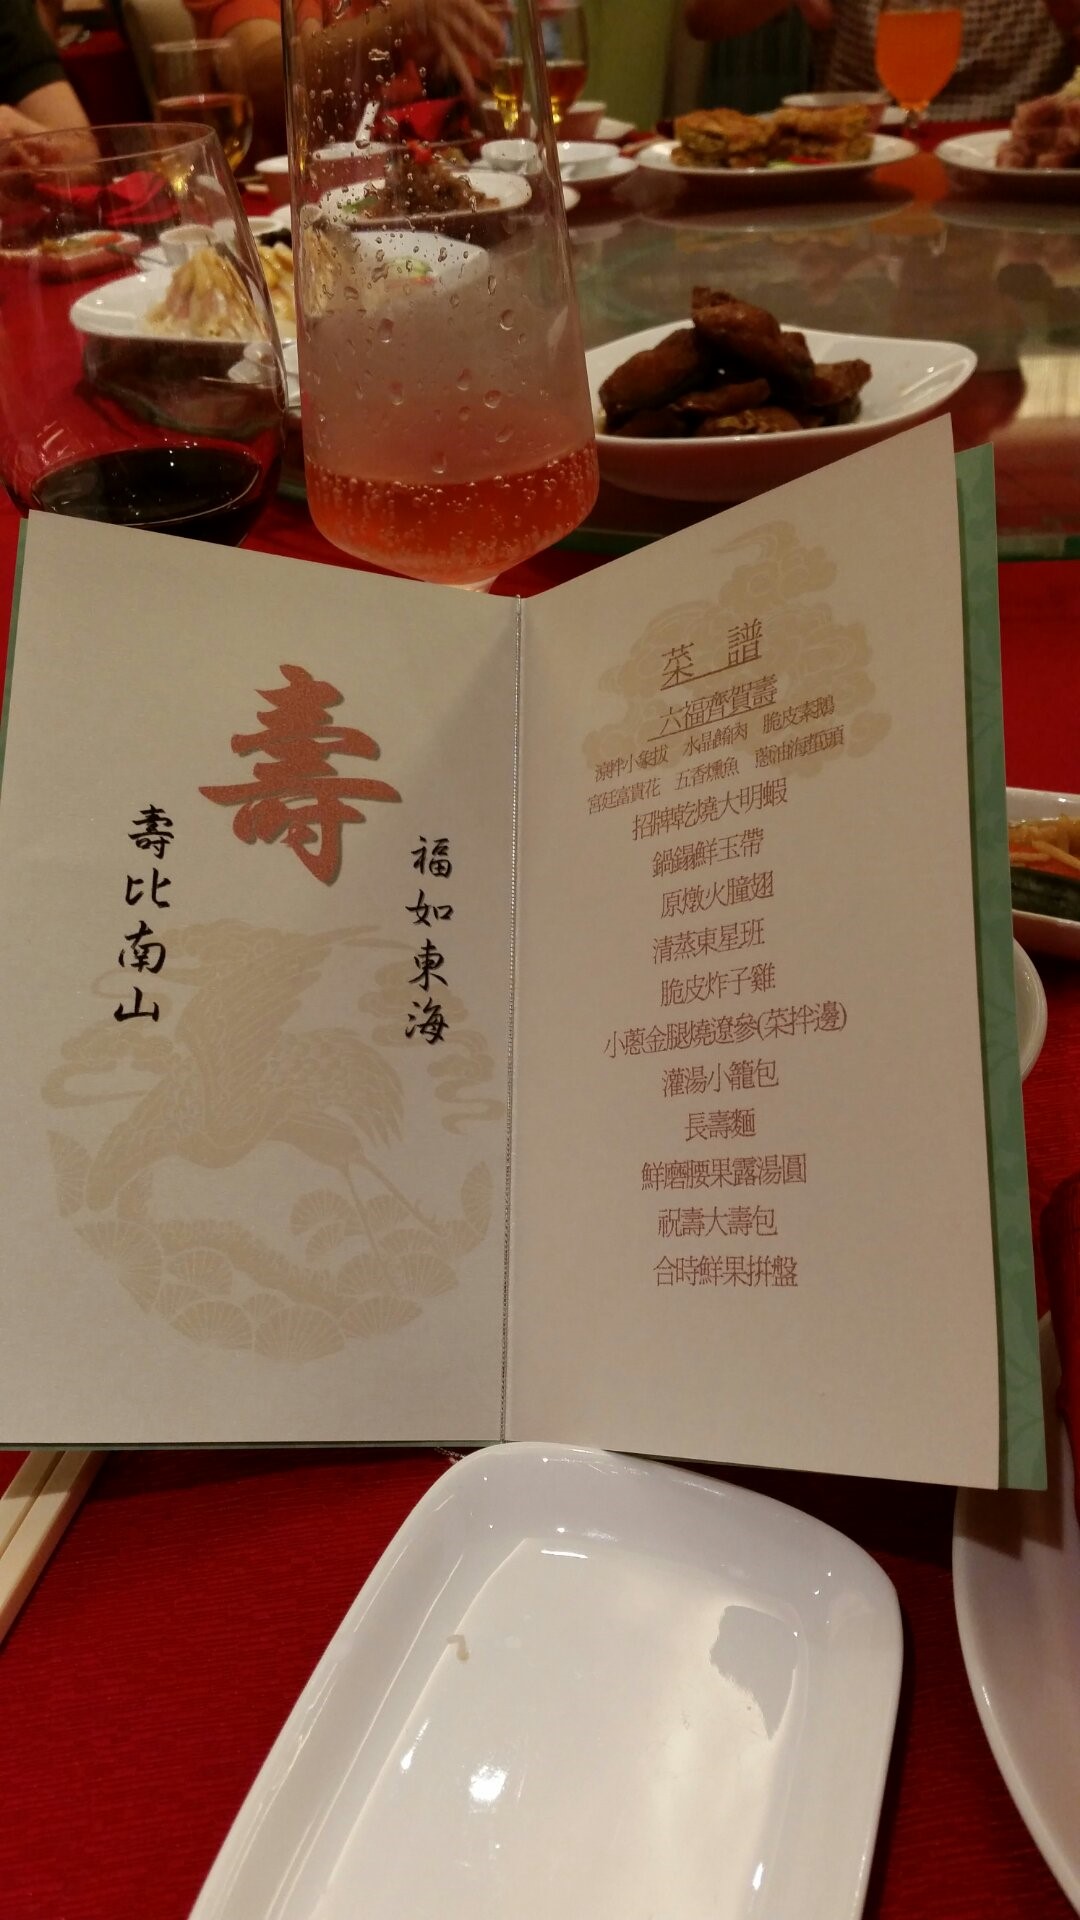 壽
福如東海
壽比南山
菜 譜
六福齊賀壽
涼拌小象拔 水晶餚肉 脆皮素鵝
宮廷富貴花 五香燻魚 蔥油海蜇頭
招牌乾燒大明蝦
鍋鎉鮮玉帶
原燉火膧翅
清蒸東星班
脆皮炸子雞
小蔥金腿燒遼參(菜拌邊)
灌湯小籠包
長壽麵
鮮磨腰果露湯圓
祝壽大壽包
合時鮮果拼盤